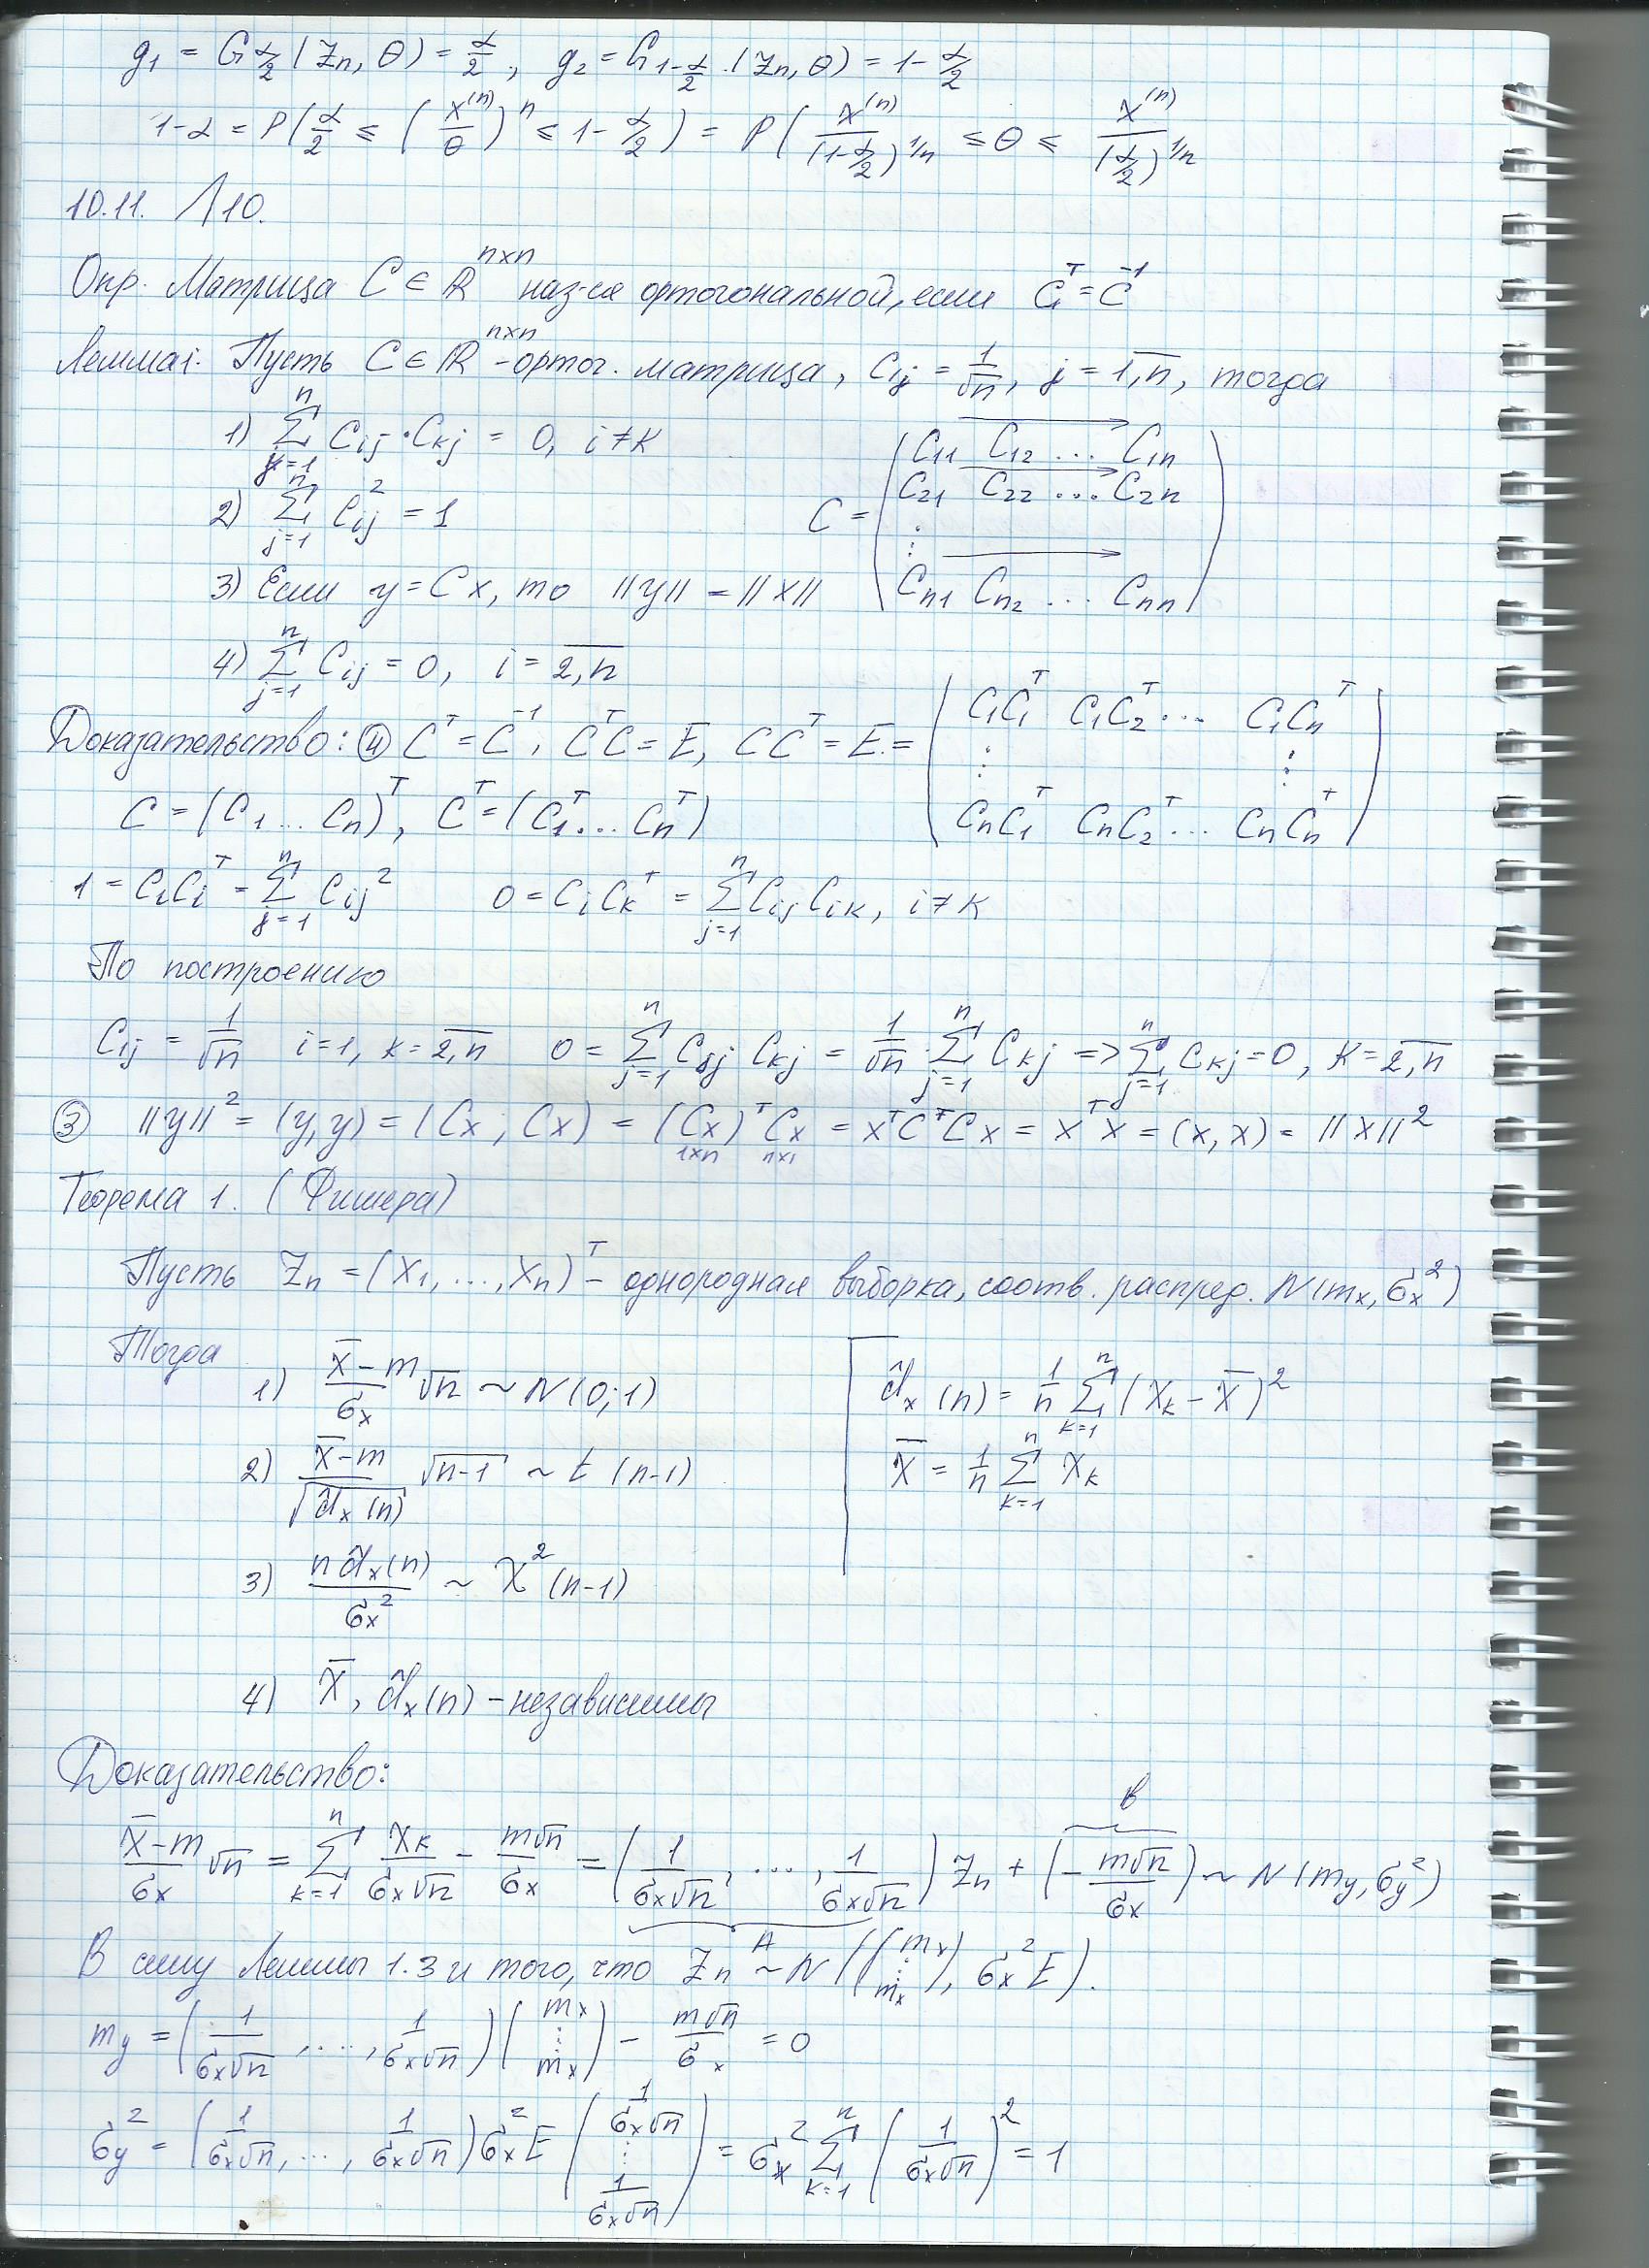 g₁ = G_{α/2}(Zn, θ) = α/2, g₂ = G_{1-α/2}(Zn, θ) = 1 - α/2
1-α = P(α/2 ≤ (X⁽ⁿ⁾/θ)ⁿ ≤ 1 - α/2) = P(X⁽ⁿ⁾/(1-α/2)^{1/n} ≤ θ ≤ X⁽ⁿ⁾/(α/2)^{1/n}
10.11. Л10.
Опр. Матрица C ∈ ℝ^{n×n} наз-ся ортогональной, если C^T = C^{-1}
Лемма1. Пусть C ∈ ℝ^{n×n} - ортог. матрица, C_{1j} = 1/√n, j = \overline{1,n}, тогда
1) ∑_{j=1}^{n} C_{ij}·C_{kj} = 0, i ≠ k
2) ∑_{j=1}^{n} C_{ij}² = 1
C = (C₁₁ C₁₂ ... C₁ₙ
C₂₁ C₂₂ ... C₂ₙ
⋮
C_{n1} C_{n2} ... C_{nn})
3) Если y = Cx, то ||y|| = ||x||
4) ∑_{j=1}^{n} C_{ij} = 0, i = \overline{2,n}
Доказательство: ④ C^T = C^{-1}, C^T C = E, C C^T = E = (C₁C₁^T C₁C₂^T ... C₁Cₙ^T
⋮ ⋮
CₙC₁^T CₙC₂^T ... CₙCₙ^T)
C = (C₁ ... Cₙ)^T, C^T = (C₁^T ... Cₙ^T)
1 = C_iC_i^T = ∑_{j=1}^{n} C_{ij}² 0 = C_iC_k^T = ∑_{j=1}^{n} C_{ij} C_{ik}, i ≠ k
По построению
C_{1j} = 1/√n i=1, k = \overline{2,n} 0 = ∑_{j=1}^{n} C_{1j} C_{kj} = 1/√n · ∑_{j=1}^{n} C_{kj} => ∑_{j=1}^{n} C_{kj} = 0, k = \overline{2,n}
③ ||y||² = (y,y) = (Cx, Cx) = (Cx)^T_{1×n} Cx_{n×1} = x^T C^T C x = x^T x = (x,x) = ||x||²
Теорема 1. (Фишера)
Пусть Zn = (X₁, ..., Xₙ)^T - однородная выборка, соотв. распред. N(mₓ, σₓ²)
Тогда
1) (X̄ - m)/σₓ √n ~ N(0;1)
d̂ₓ(n) = 1/n ∑_{k=1}^{n} (X_k - X̄)²
2) (X̄ - m)/√(d̂ₓ(n)) √(n-1) ~ t(n-1)
X̄ = 1/n ∑_{k=1}^{n} X_k
3) n d̂ₓ(n)/σₓ² ~ χ²(n-1)
4) X̄, d̂ₓ(n) - независимы
Доказательство:
(X̄ - m)/σₓ √n = ∑_{k=1}^{n} X_k/(σₓ√n) - m√n/σₓ = (1/(σₓ√n), ..., 1/(σₓ√n)) Zn + (-m√n/σₓ) ~ N(m_y, σ_y²)
A B
В силу Леммы 1.3 и того, что Zn ~ N((mₓ ⋮ mₓ), σₓ² E).
m_y = (1/(σₓ√n), ..., 1/(σₓ√n)) (mₓ ⋮ mₓ) - m√n/σₓ = 0
σ_y² = (1/(σₓ√n), ..., 1/(σₓ√n)) σₓ² E (1/(σₓ√n) ⋮ 1/(σₓ√n)) = σₓ² ∑_{k=1}^{n} (1/(σₓ√n))² = 1